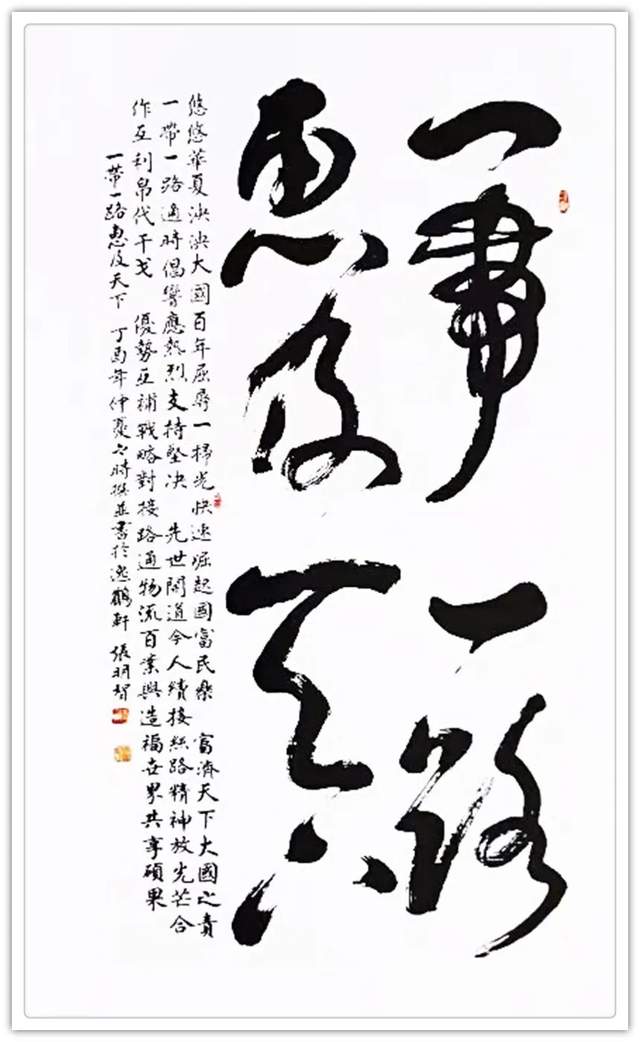 一帶一路
惠及天下
悠悠華夏泱泱大國百年屈辱一掃光快速崛起國富民樂 富濟天下大國之責
一帶一路適時倡響應熱烈支持堅决 先世開道今人續接絲路精神放光芒合
作互利帛代干戈 優勢互補戰略對接路通物流百業興造福世界共享碩果
一帶一路惠及天下 丁酉年仲夏之時撰並書於逸鶴軒 張智